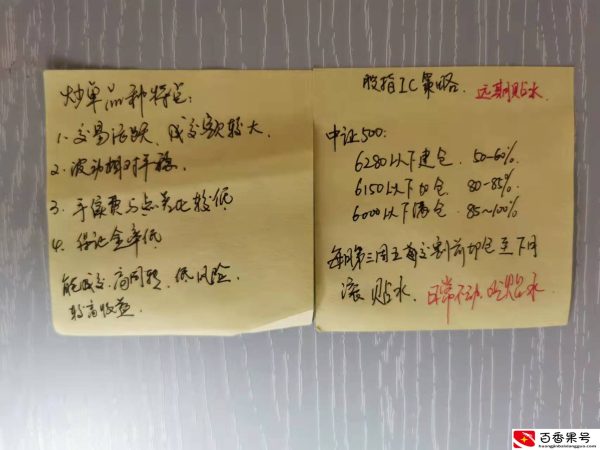 炒单品种特点:
1、交易活跃、成交额较大
2、波动相对平稳.
3、手续费与点差比较低
4、保证金率低
能成交、高周转、低风险、
较高收益
股指IC策略、远期贴水
中证500:
6280以下建仓、50-60%.
6150以下加仓、80-85%.
6000以下满仓、85~100%
每月第三周五前交割前切仓至下月
滚贴水、日常不动、吃贴水.
百香果号